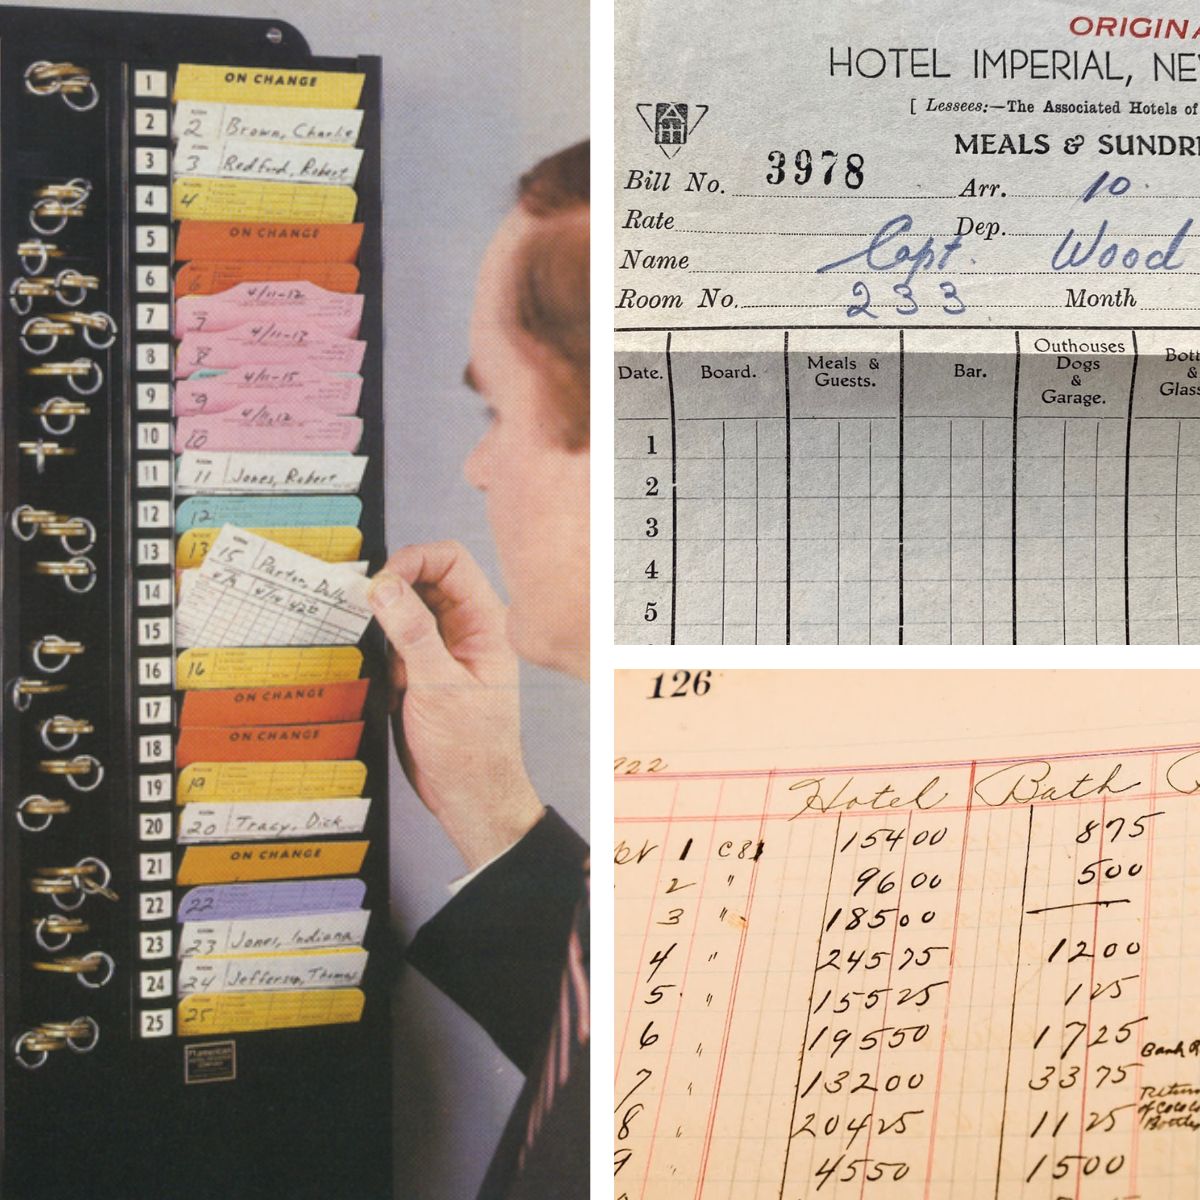 1 ON CHANGE
2 2 Brown, Charlie
3 3 Redford, Robert
4 4
5 ON CHANGE
6 6
4/11-12
7 7
4/11-13
8 8
4/11-15
9 9
4/11-12
10 10
11 11 Jones, Robert
12 12
13 13
14
15 Parton, Dolly
15
16 16
17 ON CHANGE
18 ON CHANGE
19 19
20 20 Tracy, Dick
21 ON CHANGE
22 22
23 23 Jones, Indiana
24 24 Jefferson, Thomas
25 25
ORIGINA
HOTEL IMPERIAL, NE
[ Lessees:—The Associated Hotels of
MEALS & SUNDR
Bill No. 3978 Arr. 10.
Rate Dep.
Name Capt. Wood
Room No. 233 Month
Date. Board. Meals & Guests. Bar. Outhouses Dogs & Garage. Bott & Glass
1
2
3
4
5
126
922
Hotel Bath
1 C81 154 00 8 75
2 " 96 00 5 00
3 " 185 00
4 " 245 75 12 00
5 " 155 25 1 25
6 " 195 50 17 25 Bank
7 " 132 00 33 75
8 " 204 25 11 25
9 " 45 50 15 00